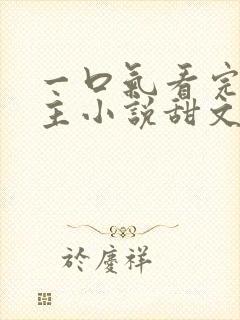 一口氣看完
主小說甜文
於慶祥